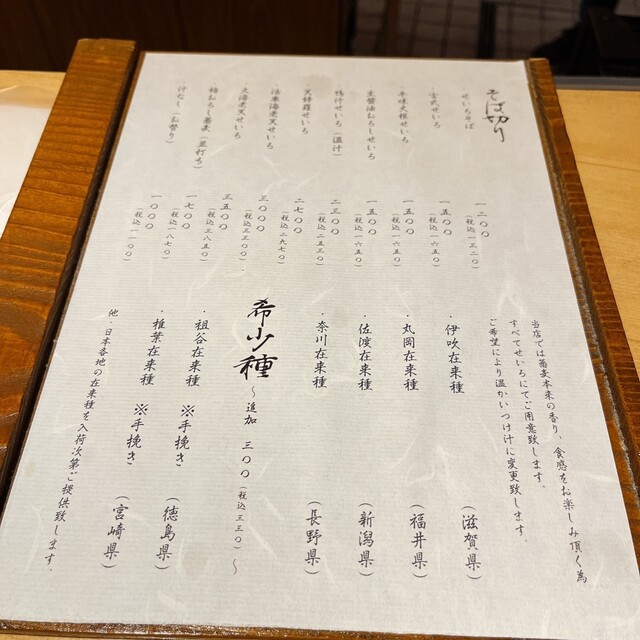 そば切り
・せいろそば 一二〇〇(税込一三二〇)
・古式せいろ 一五〇〇(税込一六五〇)
・辛味大根せいろ 一五〇〇(税込一六五〇)
・生醤油おろしせいろ 一五〇〇(税込一六五〇)
・鴨汁せいろ(温汁) 二三〇〇(税込二五三〇)
・天種籠せいろ 二七〇〇(税込二九七〇)
・活車海老天せいろ 三〇〇〇(税込三三〇〇)
・大海老天せいろ 三五〇〇(税込三八五〇)
・鶴おろし蕎麦(並打ち) 一七〇〇(税込一八七〇)
・汁なし(お替り) 一〇〇〇(税込一一〇〇)
当店では蕎麦本来の香り、食感をお楽しみ頂く為
すべてせいろにてご用意致します。
ご希望により温かいつけ汁に変更致します。
・伊吹在来種 (滋賀県)
・丸岡在来種 (福井県)
・佐渡在来種 (新潟県)
・奈川在来種 (長野県)
希少種 〜追加 三〇〇(税込三三〇)〜
・祖谷在来種 ※手挽き (徳島県)
・椎葉在来種 ※手挽き (宮崎県)
他・日本各地の在来種を入荷次第ご提供致します。